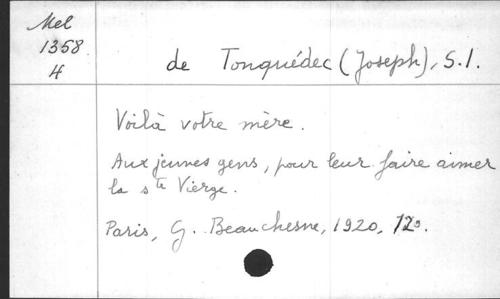 Mel
1358
H
de Tonquédec (Joseph), S.I.
Voilà votre mère.
Aux jeunes gens, pour leur faire aimer
la ste Vierge.
Paris, G. Beauchesne, 1920, 12º.